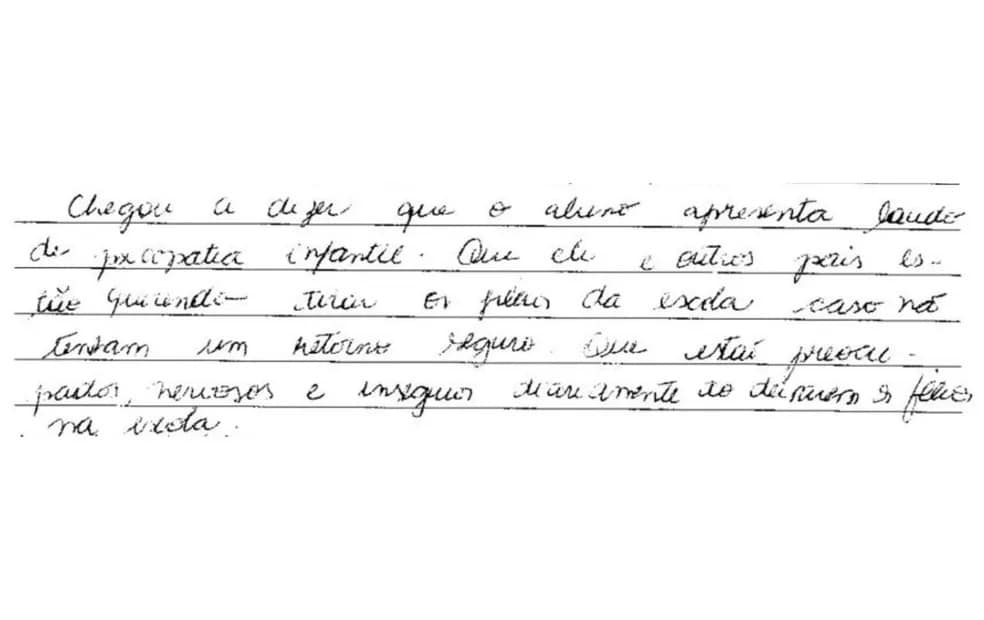 Chegou a dizer que o aluno apresenta laudo
de psicopatia infantil. Que ele e outros pais es-
tão querendo tirar os filhos da escola caso não
tenham um retorno seguro. Que estão preocu-
pados, nervosos e inseguros diariamente ao deixarem os filhos
na escola.